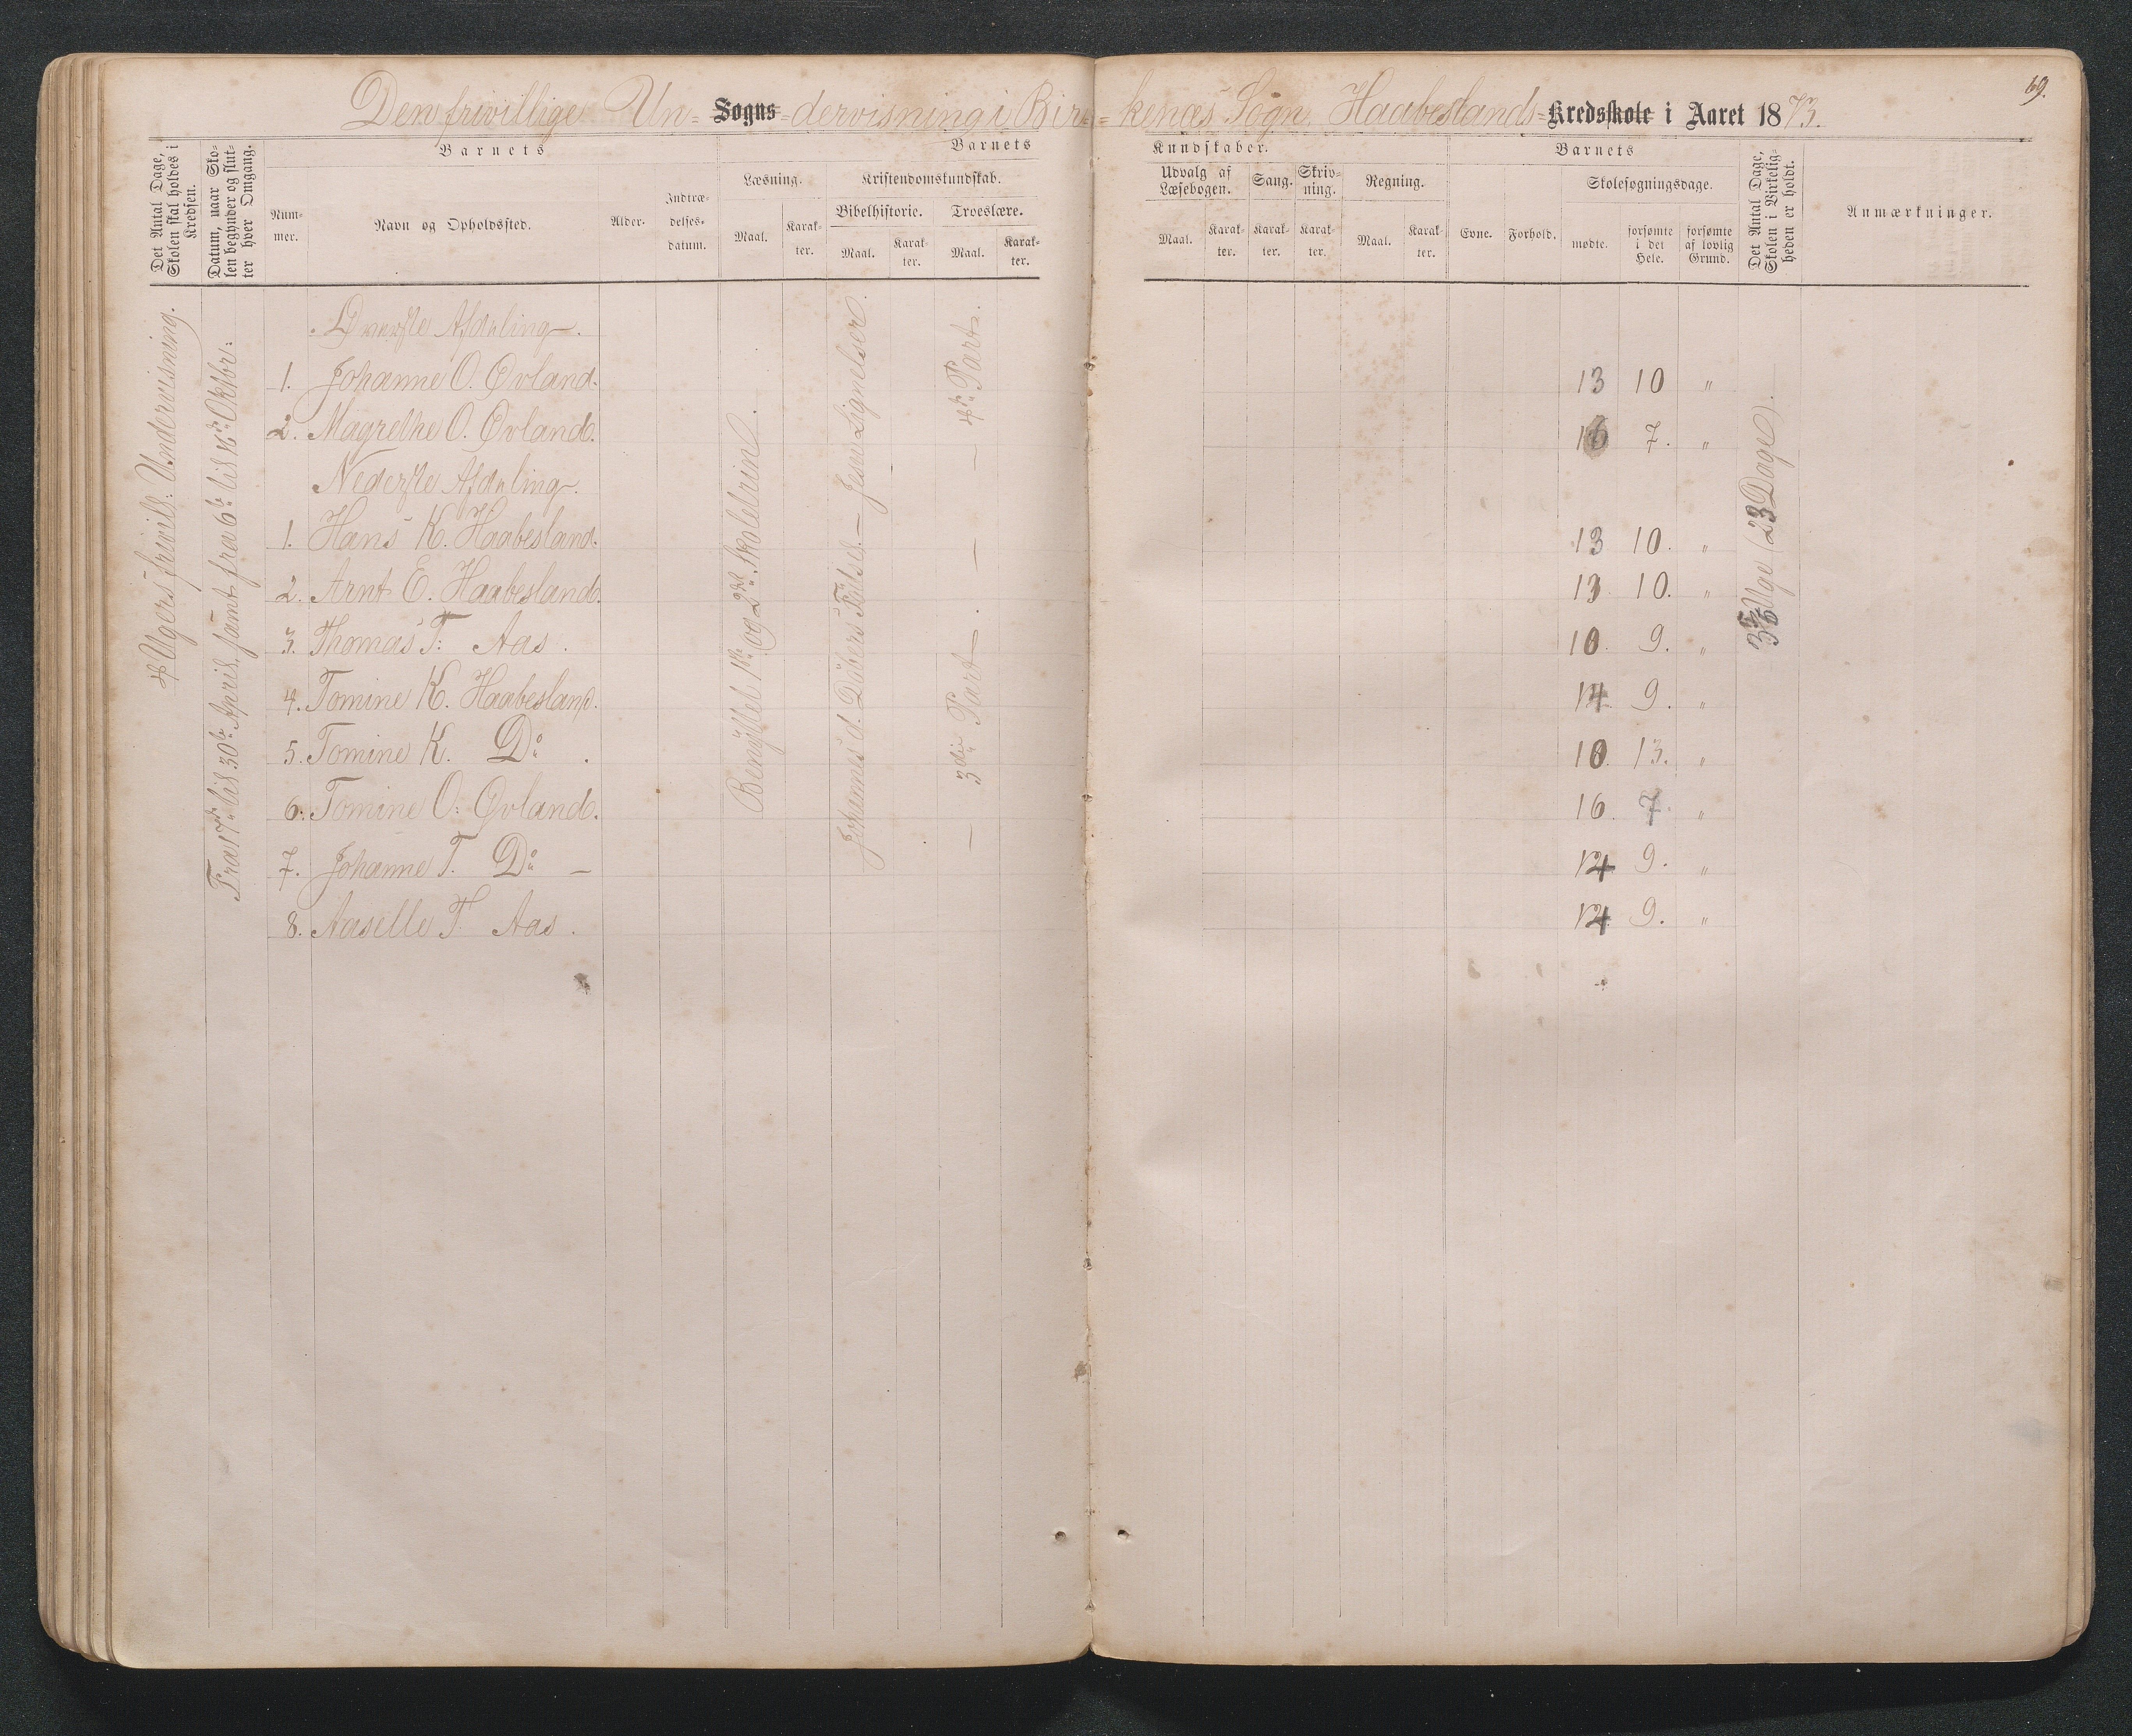 Den frivillige Un- Sogns -dervisning i Bir- -kenæs Sogn, Haabeslands- Kredsskole i Aaret 1873.
69.
Det Antal Dage, Skolen skal holdes i Kredsen.
Datum, naar Skolen begynder og slutter hver Omgang.
Barnets
Nummer.
Navn og Opholdssted.
Alder.
Indtrædelsesdatum.
Barnets
Læsning.
Maal.
Karakter.
Kristendomskundskab.
Bibelhistorie.
Maal.
Karakter.
Troeslære.
Maal.
Karakter.
Kundskaber.
Udvalg af Læsebogen.
Maal.
Karakter.
Sang.
Karakter.
Skrivning.
Karakter.
Regning.
Maal.
Karakter.
Barnets
Evne.
Forhold.
Skolesøgningsdage.
mødte.
forsømte i det Hele.
forsømte af lovlig Grund.
Det Antal Dage, Skolen i Virkeligheden er holdt.
Anmærkninger.
4 Ugers frivill: Undervisning.
Fra 17de til 30te April, samt fra 6te til 16de Oktbr:
Øverste Afdeling.
1. Johanne O. Øvland. 13 10 "
2. Magrethe O. Øvland. 16 7. "
Nederste Afdeling.
1. Hans K. Haabesland. 13 10. "
2. Arnt E. Haabesland. 13 10. "
3. Thomas T: Aas. 10. 9. "
4. Tomine K. Haabesland. 14 9. "
5. Tomine K. Do. 10. 13. "
6. Tomine O: Øvland. 16. 7. "
7. Johanne T. Do — 14 9. "
8. Aaselle T. Aas. 14 9. "
Benyttet 1ste og 2det Skoletrin.
Johannes d. Døbers Fødsel — Jesu Lignelser.
4de Part.
— 3die Part —
Uge (23 Dage).